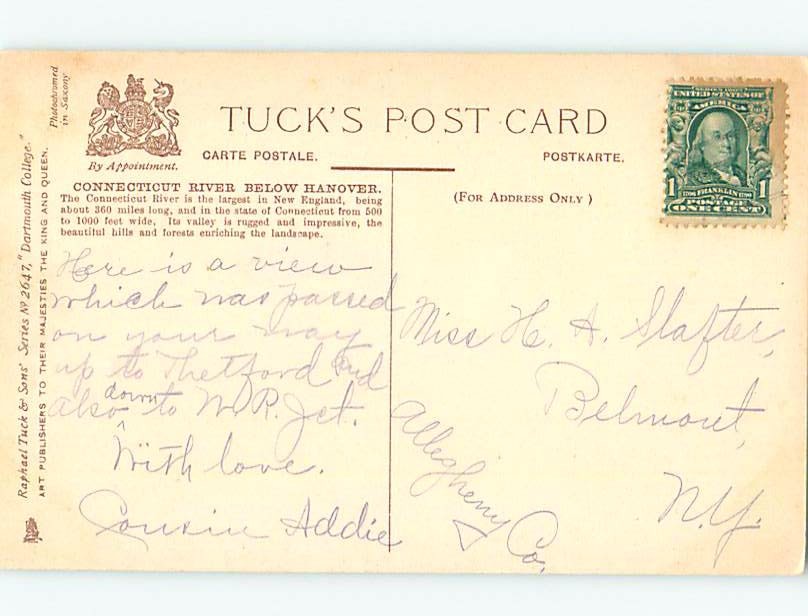 Photochromed
in Saxony.
By Appointment.
TUCK'S POST CARD
CARTE POSTALE.
POSTKARTE.
CONNECTICUT RIVER BELOW HANOVER.
The Connecticut River is the largest in New England, being
about 360 miles long, and in the state of Connecticut from 500
to 1000 feet wide. Its valley is rugged and impressive, the
beautiful hills and forests enriching the landscape.
(FOR ADDRESS ONLY)
Raphael Tuck & Sons' Series No 2647, "Dartmouth College."
ART PUBLISHERS TO THEIR MAJESTIES THE KING AND QUEEN.
Here is a view
which was passed
on your way
up to Thetford and
also down to W. R. Jct.
With love.
Cousin Addie
Miss H. A. Slafter,
Belmont,
Allegheny Co.
N.Y.
UNITED STATES OF
AMERICA
1 FRANKLIN 1
POSTAGE
ONE CENT